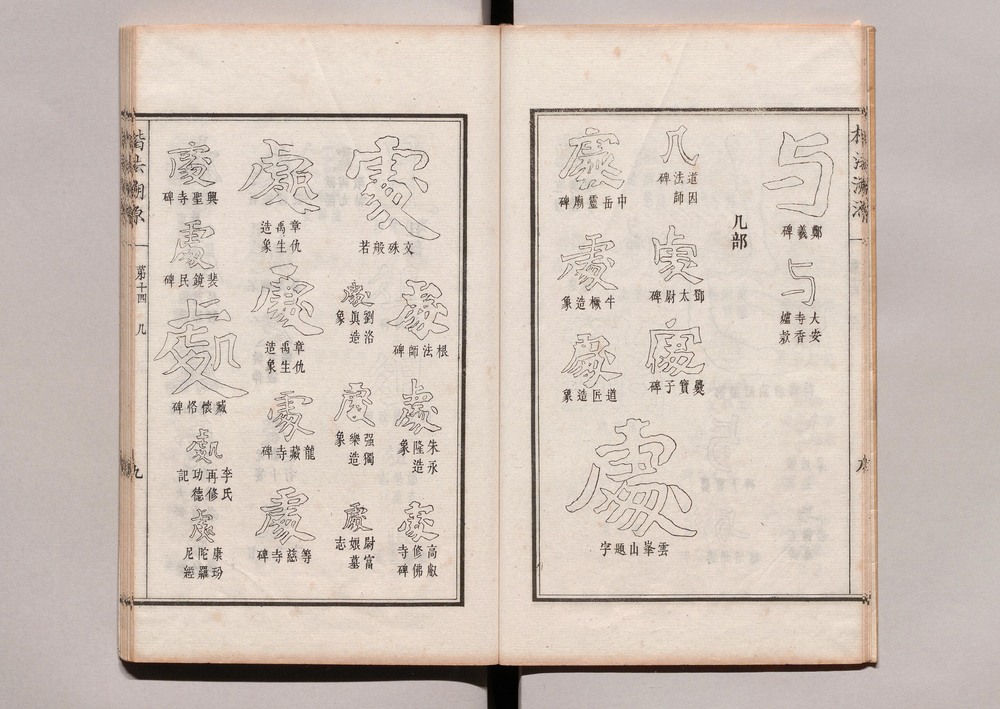 与
鄭義碑
与
大安
寺香
爐款
几部
几
道因
法師
碑
處
鄧太尉碑
處
爨寶子碑
處
中岳靈廟碑
處
牛橛造象
處
道匠造象
處
雲峯山題字
處
文殊般若
處
根法師碑
處
朱永
隆造
象
處
高叡
修佛
寺碑
處
劉洛
眞造
象
處
强獨
樂造
象
處
尉富
娘墓
志
處
章仇
禹生
造象
處
章仇
禹生
造象
處
龍藏寺碑
處
等慈寺碑
處
興聖寺碑
處
裴鏡民碑
處
臧懷恪碑
處
李氏
再修
功德
記
處
康玢
陀羅
尼經
楷法溯源
第十四
几
九